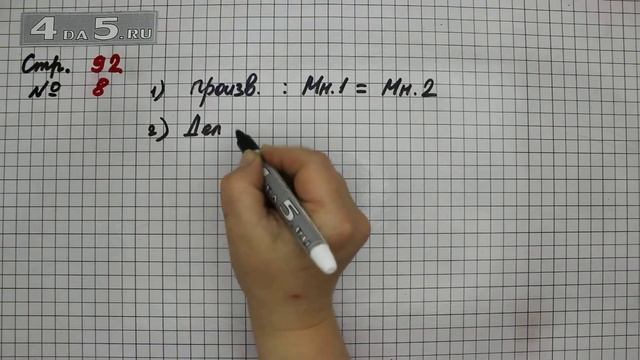 4 DA 5.RU
Стр. 92
№ 8 1) произв. : Мн.1 = Мн.2
2) Дел